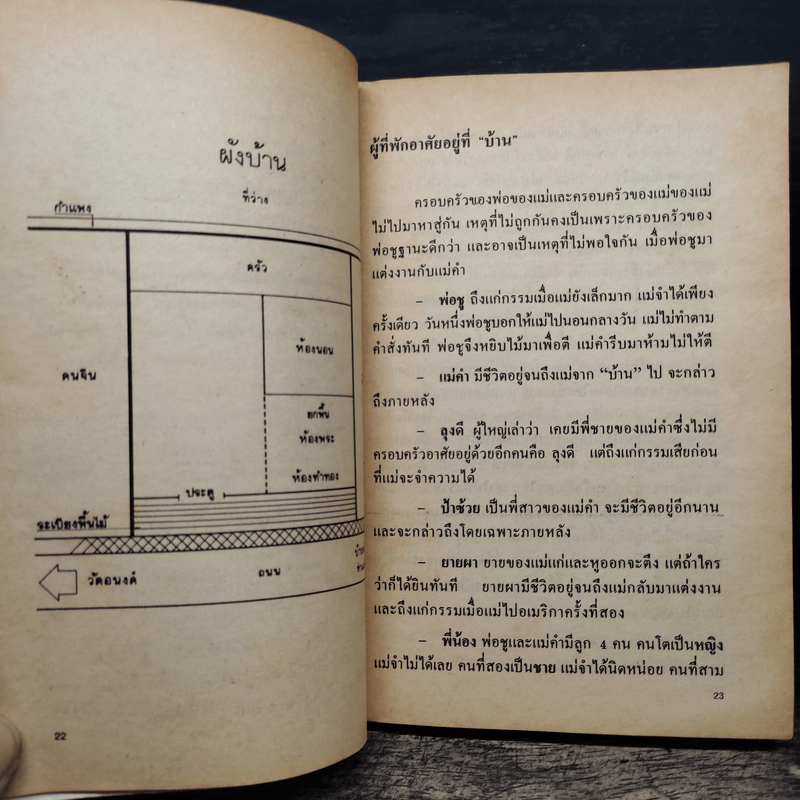 ผังบ้าน
ที่ว่าง
กำแพง
ครัว
ห้องนอน
คนจีน
ยกพื้น
ห้องพระ
ห้องทำทอง
ประตู
ระเบียงพื้นไม้
วัดอนงค์
ถนน
22
ผู้ที่พักอาศัยอยู่ที่ “บ้าน”
ครอบครัวของพ่อของแม่และครอบครัวของแม่ของแม่
ไม่ไปมาหาสู่กัน เหตุที่ไม่ถูกกันคงเป็นเพราะครอบครัวของ
พ่อชูฐานะดีกว่า และอาจเป็นเหตุที่ไม่พอใจกัน เมื่อพ่อชูมา
แต่งงานกับแม่คำ
– พ่อชู ถึงแก่กรรมเมื่อแม่ยังเล็กมาก แม่จำได้เพียง
ครั้งเดียว วันหนึ่งพ่อชูบอกให้แม่ไปนอนกลางวัน แม่ไม่ทำตาม
คำสั่งทันที พ่อชูจึงหยิบไม้มาเพื่อตี แม่คำรีบมาห้ามไม่ให้ตี
– แม่คำ มีชีวิตอยู่จนถึงแม่จาก “บ้าน” ไป จะกล่าว
ถึงภายหลัง
– ลุงดี ผู้ใหญ่เล่าว่า เคยมีพี่ชายของแม่คำซึ่งไม่มี
ครอบครัวอาศัยอยู่ด้วยอีกคนคือ ลุงดี แต่ถึงแก่กรรมเสียก่อน
ที่แม่จะจำความได้
– ป้าซ้วย เป็นพี่สาวของแม่คำ จะมีชีวิตอยู่อีกนาน
และจะกล่าวถึงโดยเฉพาะภายหลัง
– ยายผา ยายของแม่แก่และหูออกจะตึง แต่ถ้าใคร
ว่าก็ได้ยินทันที ยายผามีชีวิตอยู่จนถึงแม่กลับมาแต่งงาน
และถึงแก่กรรมเมื่อแม่ไปอเมริกาครั้งที่สอง
– พี่น้อง พ่อชูและแม่คำมีลูก 4 คน คนโตเป็นหญิง
แม่จำไม่ได้เลย คนที่สองเป็นชาย แม่จำได้นิดหน่อย คนที่สาม
23